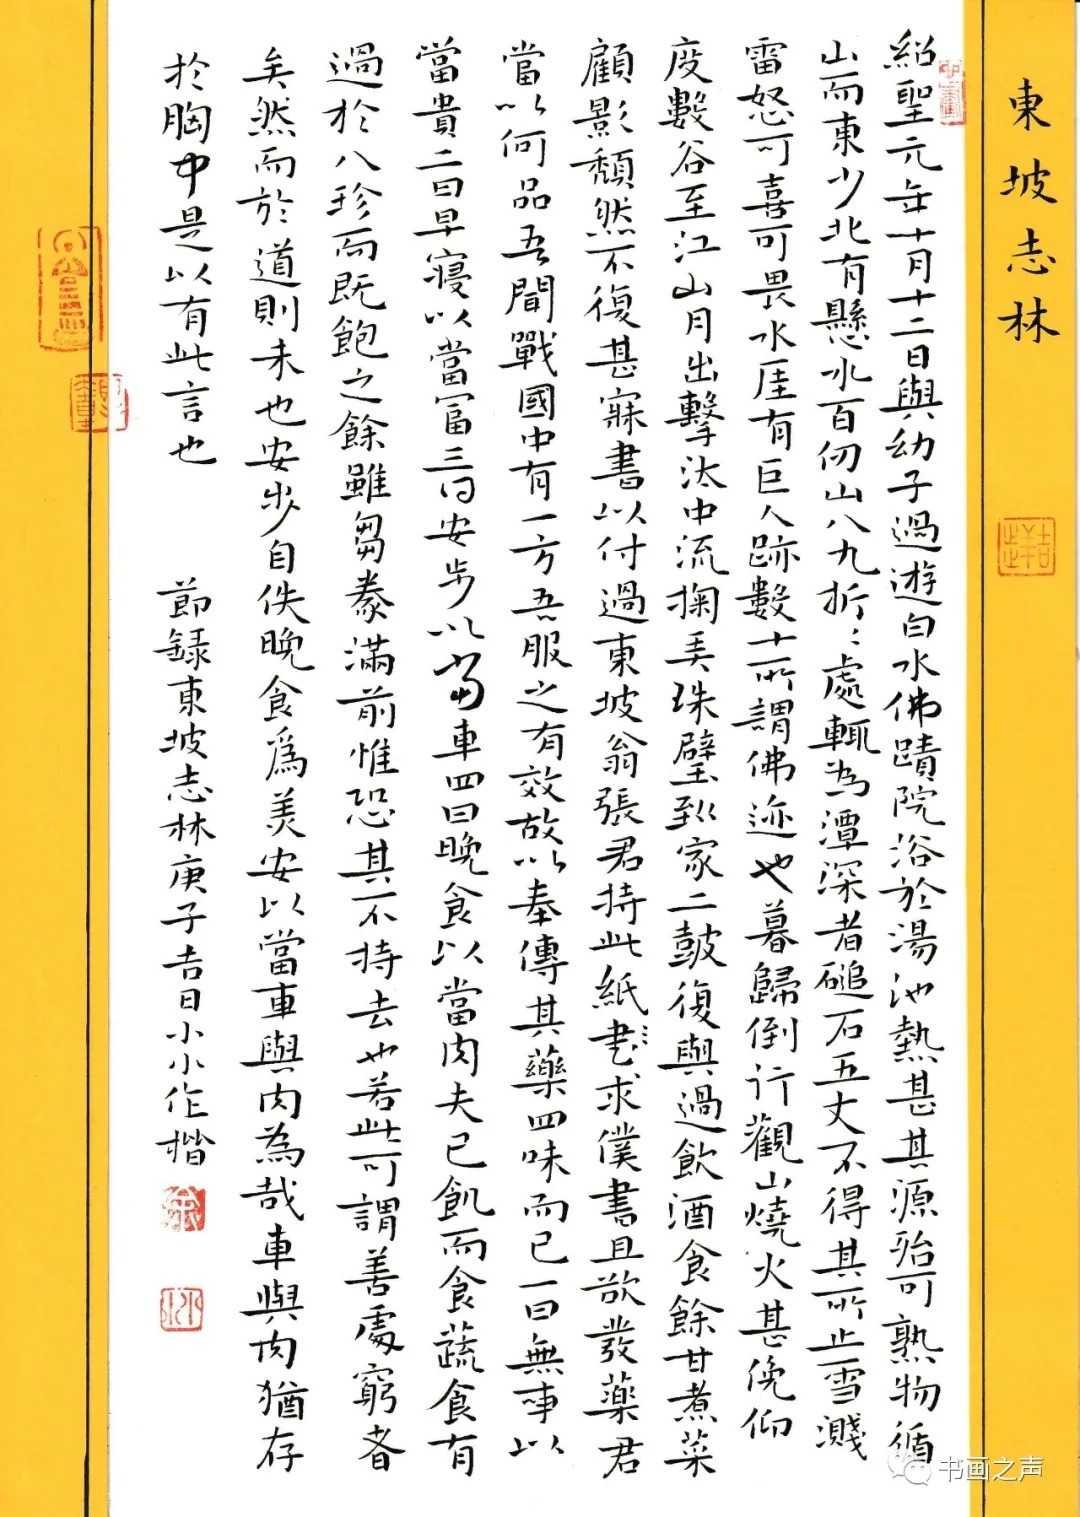 東坡志林
紹聖元年十月十二日與幼子過遊白水佛蹟院浴於湯池熱甚其源殆可熟物循
山而東少北有懸水百仞山八九折〻處輒為潭深者磓石五丈不得其所止雪濺
雷怒可喜可畏水厓有巨人跡數十所謂佛迹也暮歸倒行觀山燒火甚俛仰
度數谷至江山月出擊汰中流掬弄珠璧到家二鼓復與過飲酒食餘甘煮菜
顧影頹然不復甚寐書以付過東坡翁張君持此紙求僕書且欲發藥君
當以何品吾聞戰國中有一方吾服之有效故以奉傳其藥四味而已一曰無事以
當貴二曰早寢以當富三曰安步以當車四曰晚食以當肉夫已飢而食蔬食有
過於八珍而既飽之餘雖芻豢滿前惟恐其不持去也若此可謂善處窮者
矣然而於道則未也安步自佚晚食為美安以當車與肉為哉車與肉猶存
於胸中是以有此言也
節錄東坡志林庚子吉日小小作楷
书画之声